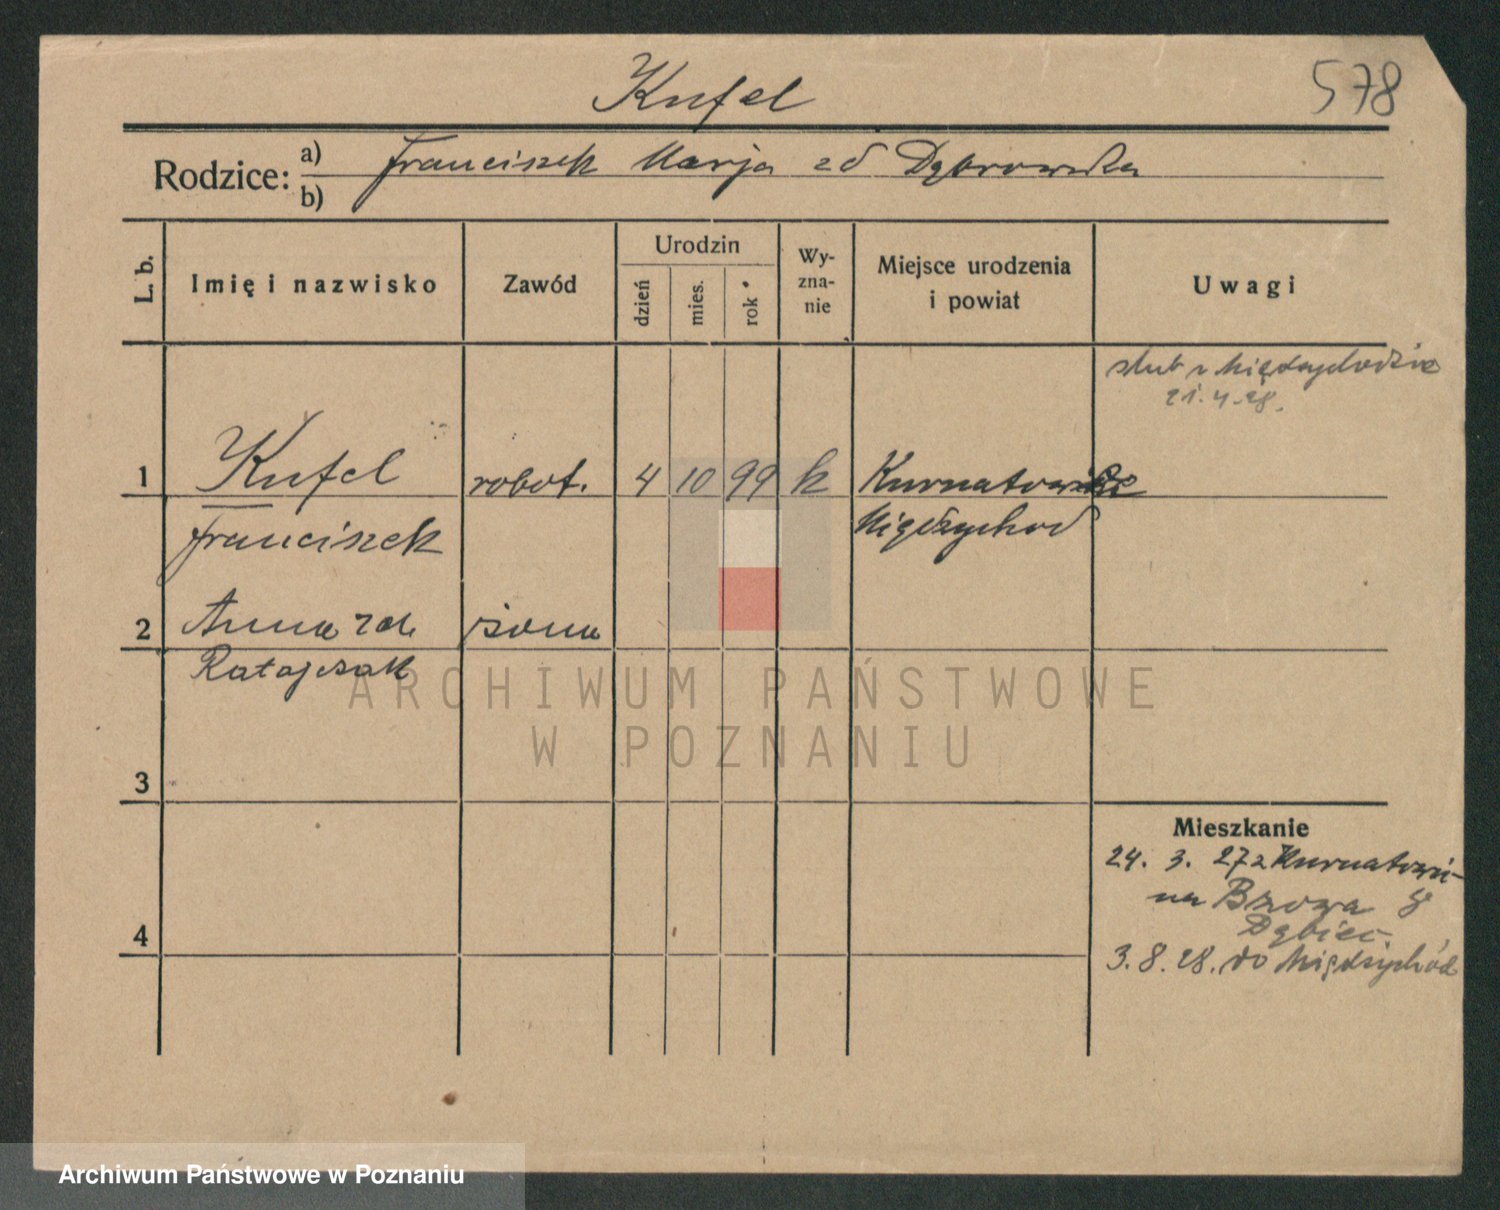 Kufel
578
Rodzice: a) Franciszek Marja zd Dąbrowska
b)
L. b.
Imię i nazwisko
Zawód
Urodzin
dzień
mies.
rok
Wy-
zna-
nie
Miejsce urodzenia
i powiat
Uwagi
ślub w Międzychodzie
21.4.28.
1 Kufel robot. 4 10 99 k
Franciszek Międzychod
2 Anna zd. żona
Ratajczak
3
4
Mieszkanie
24. 3. 27 z
Brzoza 8
Dębiec
3.8.28. do Międzychód
ARCHIWUM PAŃSTWOWE
W POZNANIU
Archiwum Państwowe w Poznaniu